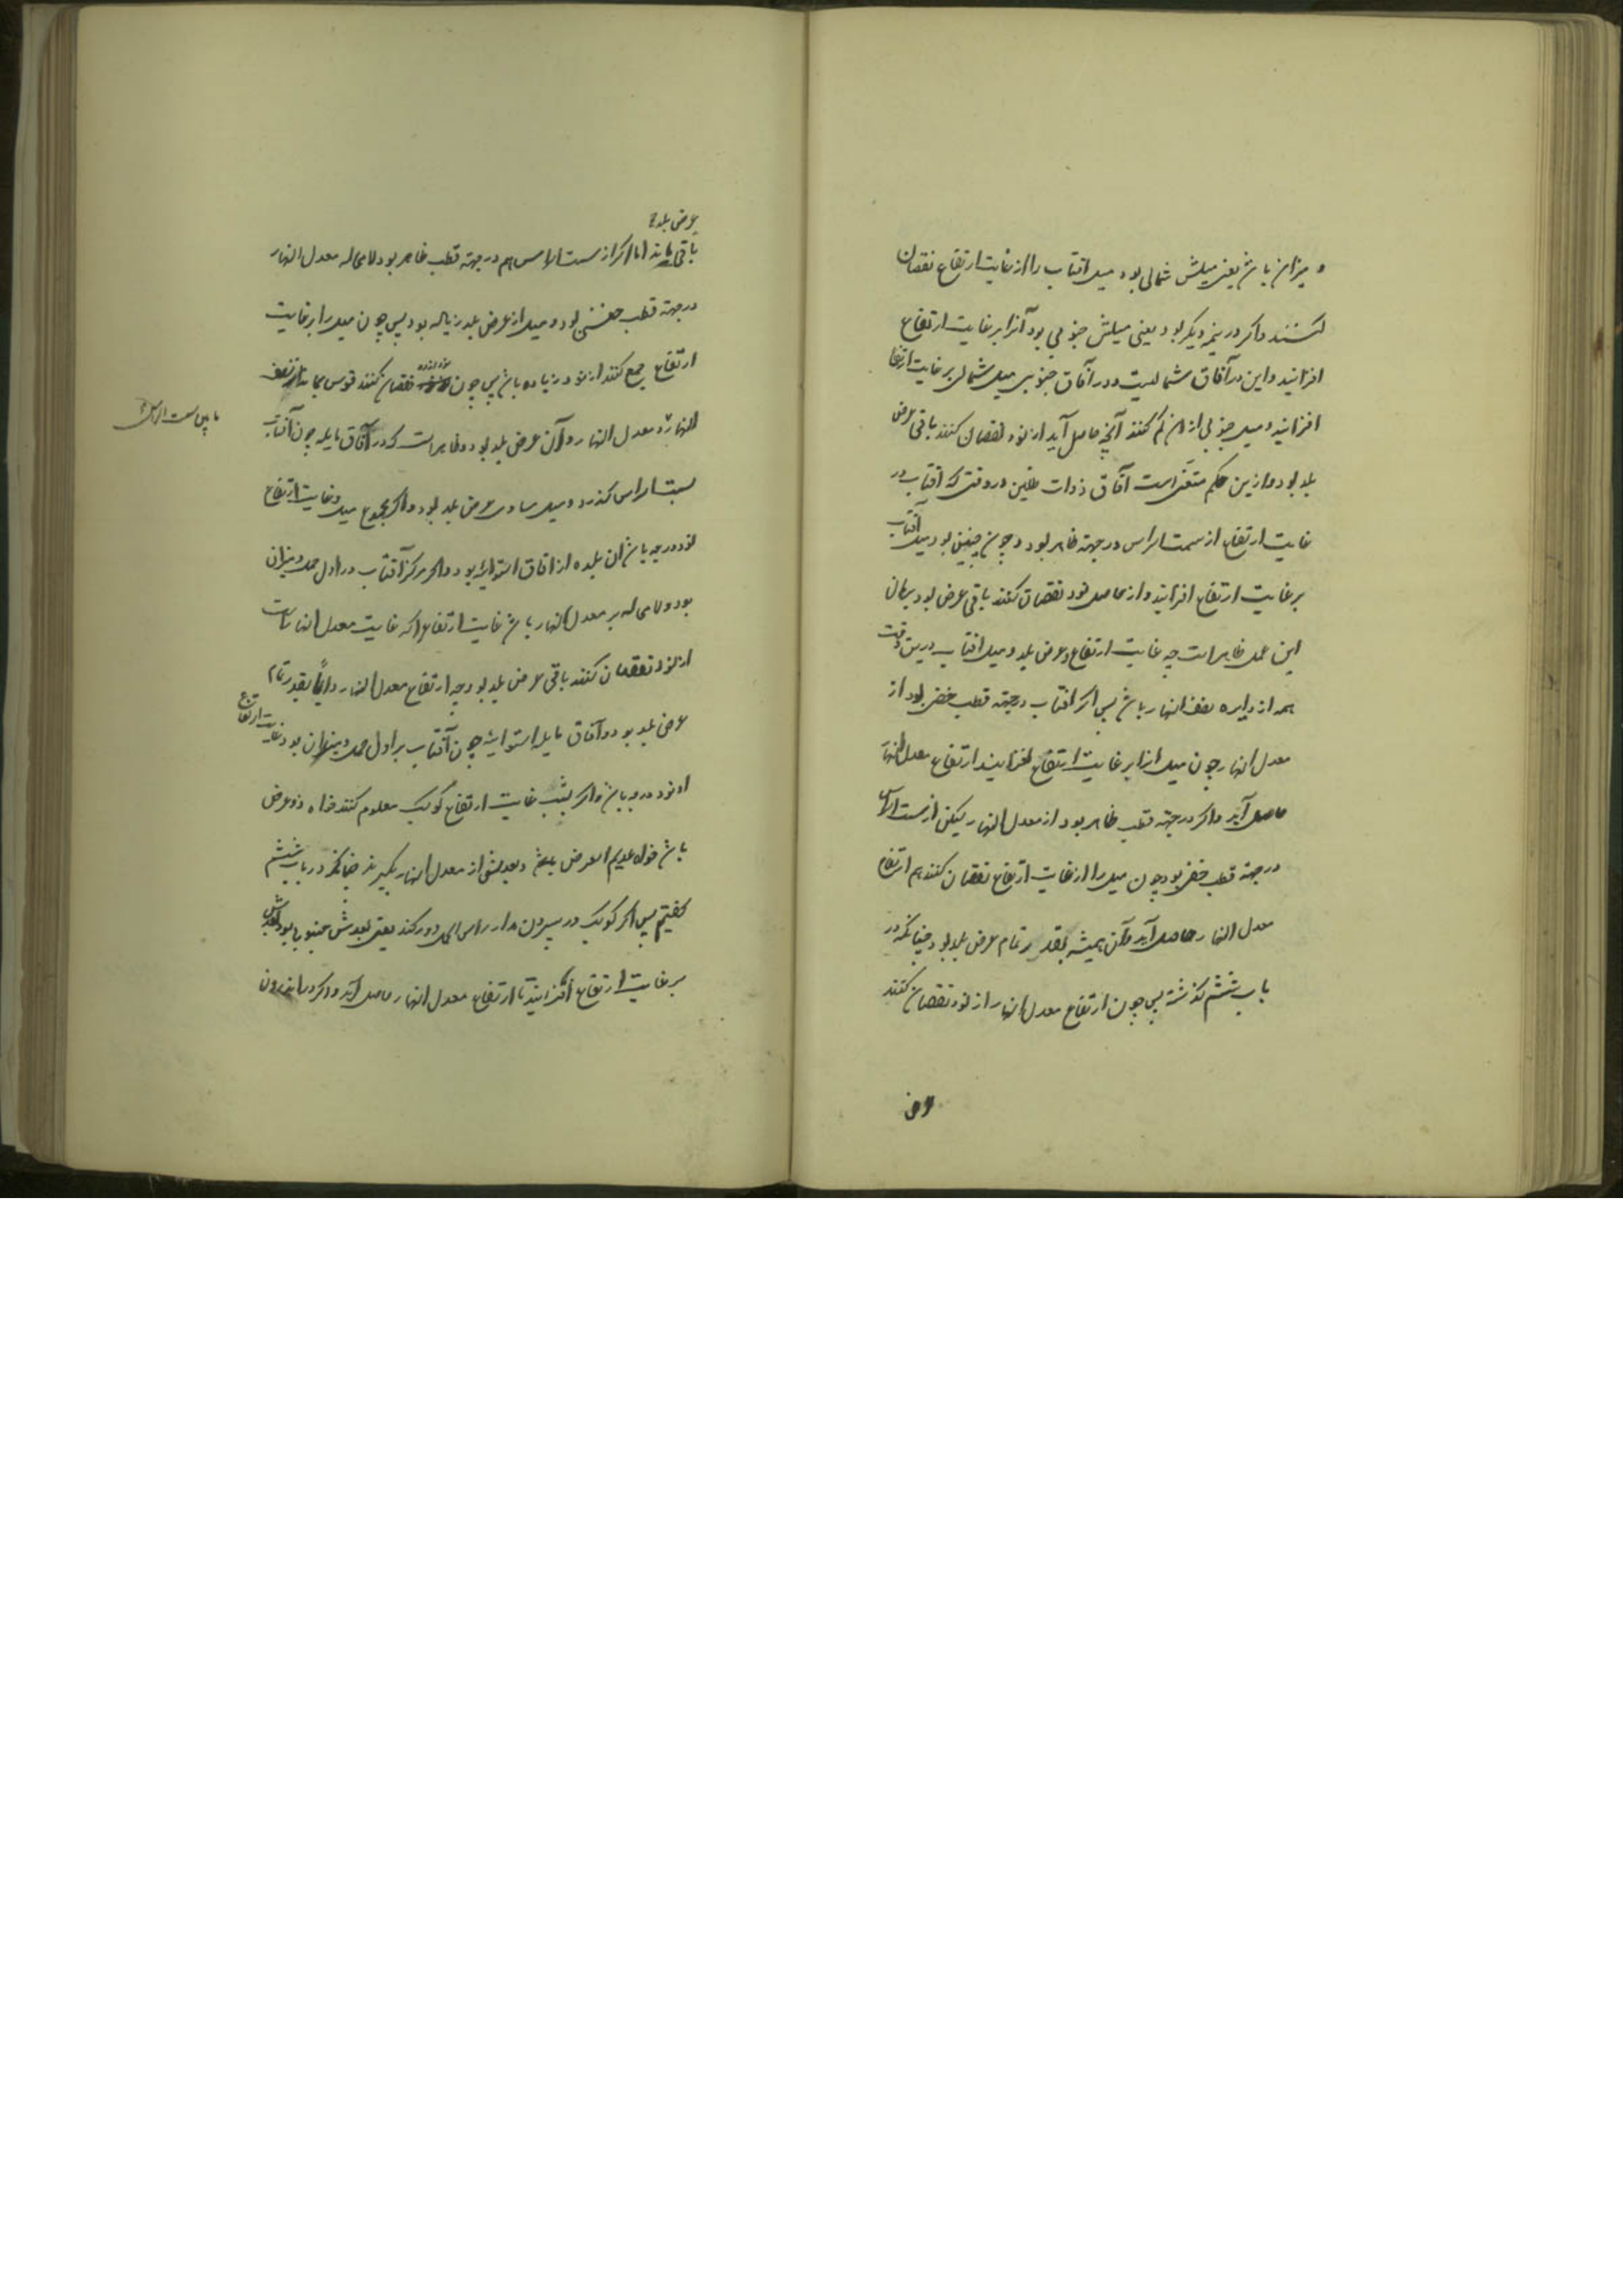 و میزان باشد یعنی میلش شمالی بود میل افتاب را از غایت ارتفاع نقصان
کنند و اکر در نیمه دیکر بود یعنی میلش جنوبی بود آنرا بر غایت ارتفاع
افزایند و این در آفاق شمالیست و در آفاق جنوبی میل شمالی بر غایت ارتفاع
افزایند و میل جنوبی از ان کم کنند آنچه حاصل آید از نود نقصان کنند باقی عرض
بلد بود و ازین حکم مستثنی است آفاق ذوات ظلین در وقتی که افتاب در
غایت ارتفاع از سمت الراس در جهة قطب ظاهر بود و چون چنین بود میل آفتاب
بر غایت ارتفاع افزایند و از حاصل نود نقصان کنند باقی عرض بود برهان
این عمل ظاهر است چه غایت ارتفاع و عرض بلد و میل افتاب درین وقت
همه از دایره نصف النهار باشد پس اکر افتاب در جهة قطب خفی بود از
معدل النهار چون میل انرا بر غایت ارتفاع افزایند ارتفاع معدل النهار
حاصل آید و اکر در جهة قطب ظاهر بود از معدل النهار لیکن از سمت الراس
در جهة قطب خفی بود چون میل را از غایت ارتفاع نقصان کنند هم ارتفاع
معدل النهار حاصل آید و آن همیشه بقدر تمام عرض بلد بود چنانکه در
باب ششم گذشته پس چون ارتفاع معدل النهار از نود نقصان کنند
عرض
عرض بلد
باقی ماند اما اکر از سمت الراس هم در جهة قطب ظاهر بود لامحاله معدل النهار
در جهة قطب خفی بود و میل از عرض بلد زیاده بود پس چون میل را بر غایت
ارتفاع جمع کنند از نود زیاده باشد پس چون نود نقصان کنند قوسی بماند از نصف
النهار معدل النهار و آن عرض بلد بود و ظاهر است که در آفاق مایله چون آفتاب
ما بین سمت الراس و
بسمت الراس کذرد و میل مساوی عرض بلد بود و اکر مجموع میل و غایت ارتفاع
نود درجه باشد ان بلده از افاق استوائیه بود و اکر مرکز آفتاب در اول حمل و میزان
بود و لامحاله بر معدل النهار باشد غایت ارتفاع را که غایت معدل النهار است
از نود نقصان کنند باقی عرض بلد بود چه ارتفاع معدل النهار دایماً بقدر تمام
عرض بلد بود و آفاق مایله استوائیه چون آفتاب بر اول حمل و میزان بود غایت ارتفاع
او نود درجه باشد و اکر بشب غایت ارتفاع کوکب معلوم کنند خواه ذو عرض
باشد خواه عدیم العرض باشد و بعدش از معدل النهار بگیرند چنانکه در باب ششم
کفتیم پس اکر کوکب در بیرون مدار راس الحمل دور کند یعنی بعدش جنوبی بود بعدش
بر غایت ارتفاع افزایند تا ارتفاع معدل النهار حاصل آید و اکر در اندرون